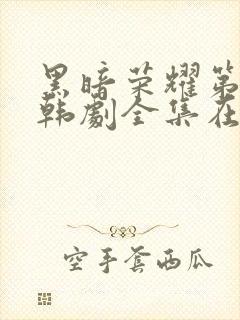 黑暗荣耀第
韩剧全集在
空手套西瓜